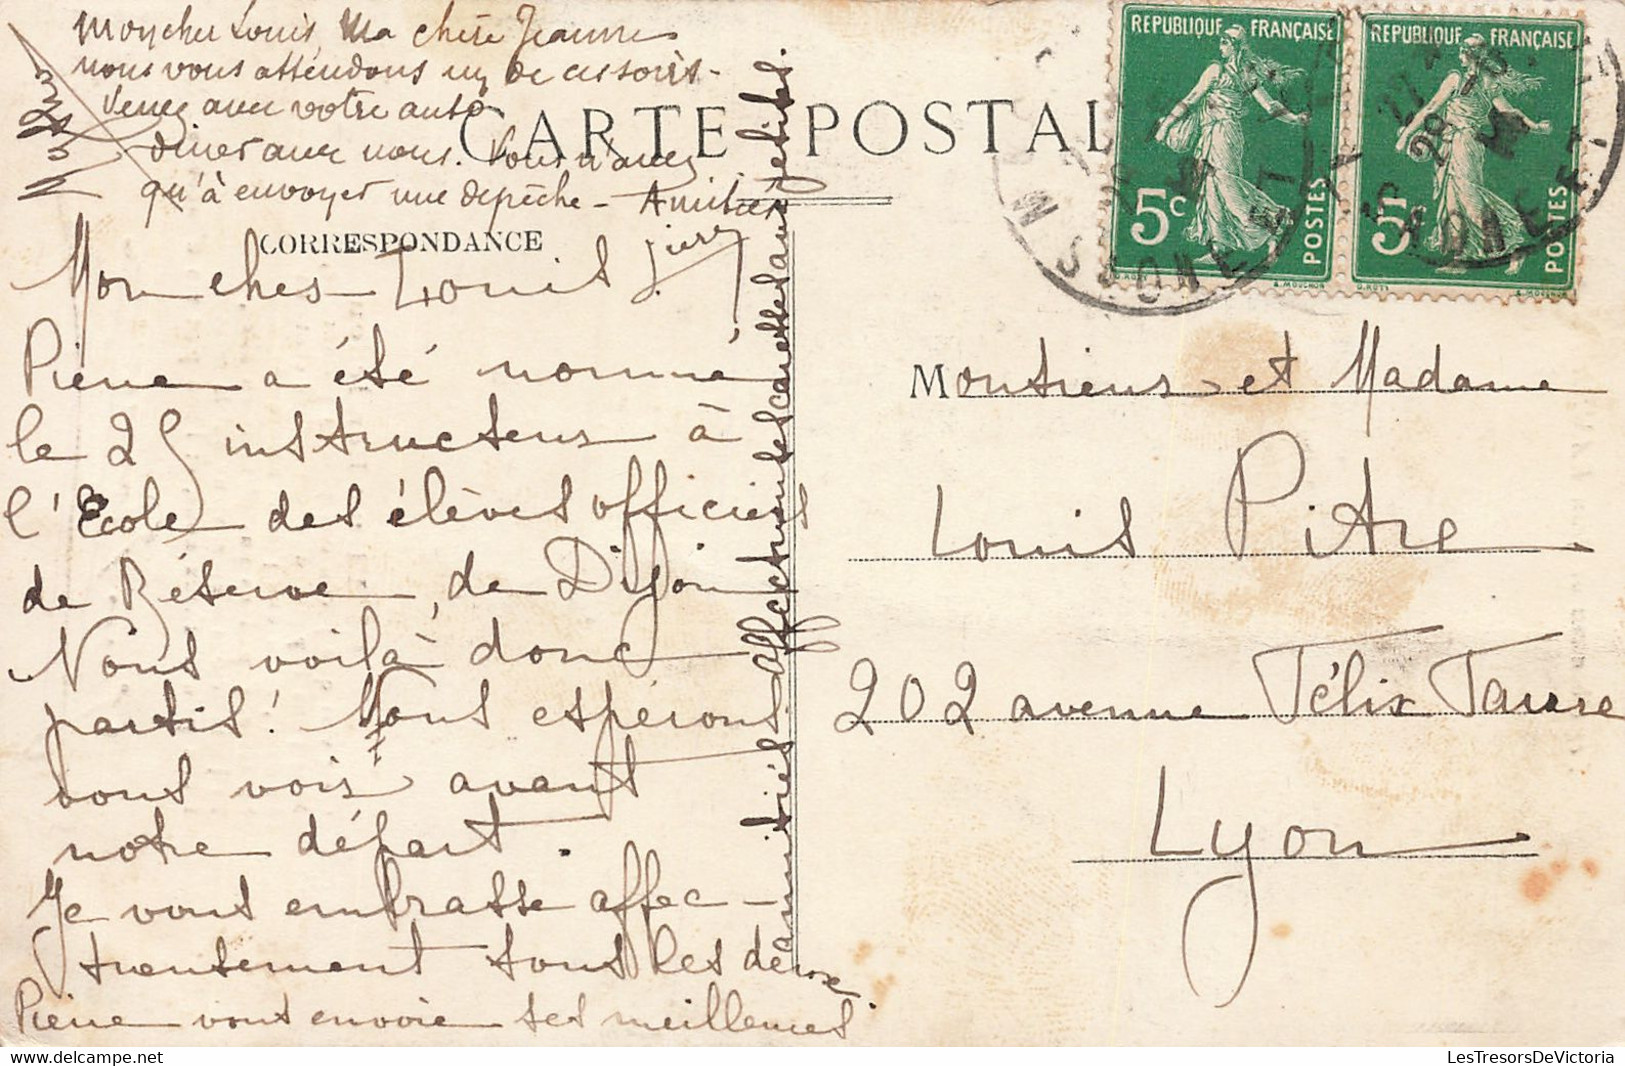 Mon cher Louis, Ma chère Jeanne
nous vous attendons un de ces soirs -
Venez avec votre auto
diner avec nous. Vous n'avez
qu'à envoyer une depêche - Amitiés
Pierre
CARTE POSTALE
CORRESPONDANCE
Mon cher Louis
Pierre a été nommé
le 25 instructeur à
l'Ecole des élèves officiers
de Réserve, de Dijon
Nous voilà donc
partis! Nous espérons
vous voir avant
notre départ.
Je vous embrasse affec-
tueusement tous les deux.
Pierre vous envoie ses meilleures
amitiés affectueuses
aux petites
RÉPUBLIQUE FRANÇAISE
5c
POSTES
RÉPUBLIQUE FRANÇAISE
5c
POSTES
SAONE ET
Monsieur et Madame
Louis Pitre
202 avenue Félix Faure
Lyon
LesTresorsDeVictoria